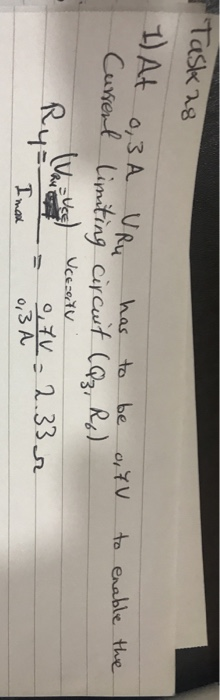 Task 28
1) At 0,3 A VR4 has to be 0,7V to enable the
Current limiting circuit (Q3, R6)
(VR4 = VCE) VCE=0,7V
R4 = / Imax = 0,7V / 0,3A = 2.33 Ω